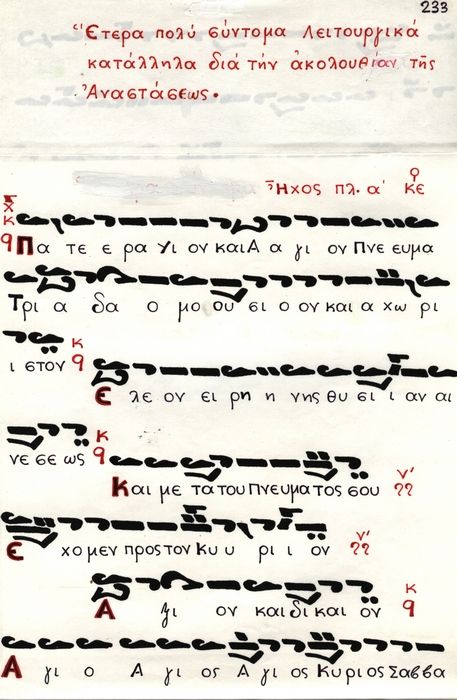 233
Ἕτερα πολύ σύντομα Λειτουργικά
κατάλληλα διά τήν ἀκολουθίαν τῆς
Ἀναστάσεως.
Ἦχος πλ. α' Κε
Πα τε ε ρα Υι ον και Α α γι ον Πνε ευμα
Τρι α δα ο μο ου σι ο ον και α χω ρι
ι στον
Ε λε ον ει ρη η νης θυ σι ι αν αι
νε σε ως
Και με τα του Πνευμα τος σου
Ε χο μεν προς τον Κυ υ ρι ι ον
Α ξι ον και δι και ον
Α γι ο Α γι ος Α γι ος Κυρι ος Σαββα